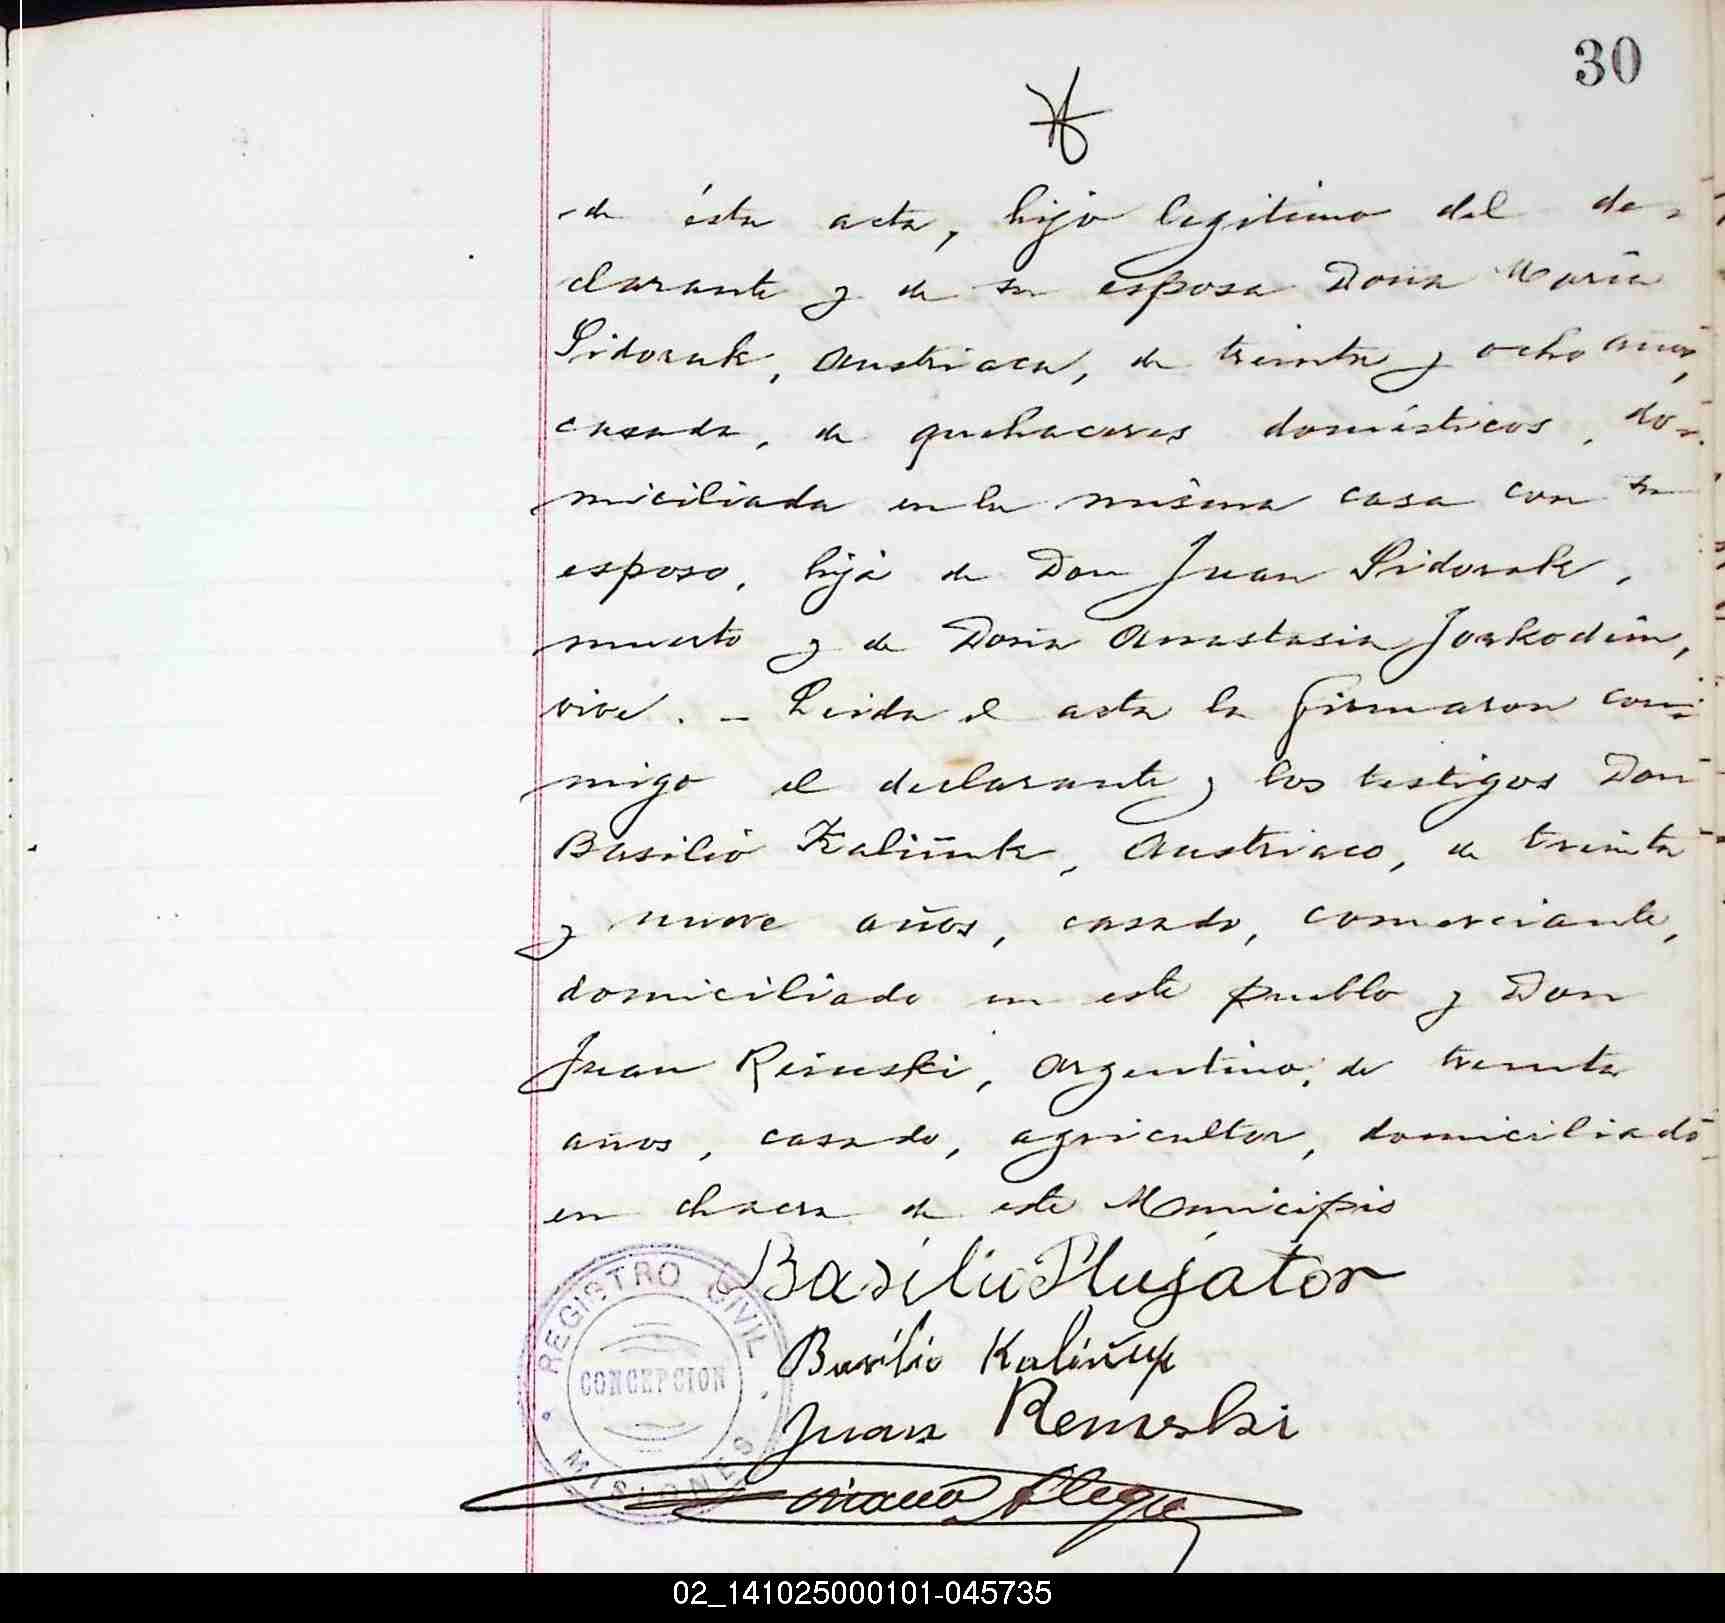 30
de ésta acta, hijo legitimo del de-
clarante y de su esposa Doña María
Sidoruk, Austriaca, de treinta y ocho años,
casada, de quehaceres domésticos, do-
miciliada en la misma casa con su
esposo, hija de Don Juan Sidoruk,
muerto y de Doña Anastasia
vive. - Leida el acta la firmaron con-
migo el declarante y los testigos Don
Basilio Kaliñuk, Austriaco, de treinta
y nueve años, casado, comerciante,
domiciliado en este pueblo y Don
Juan Argentino, de treinta
años, casado, agricultor, domiciliado
en chacra de este Municipio
Basilio
Basilio Kaliñuk
Juan
REGISTRO CIVIL
CONCEPCION
MISIONES
02_141025000101-045735